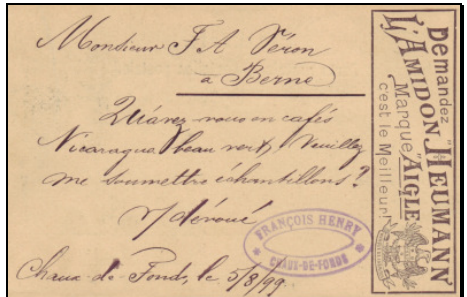 Monsieur F A Véron
à Berne
Qu'avez-vous en cafés
Nicaragua beau vert, Veuillez
me soumettre échantillons?
v/ dévoué
Chaux-de-Fonds, le 5/8/99
FRANÇOIS HENRY
CHAUX-DE-FONDS
Demandez
L'AMIDON "HEUMANN"
Marque AIGLE
c'est le Meilleur!